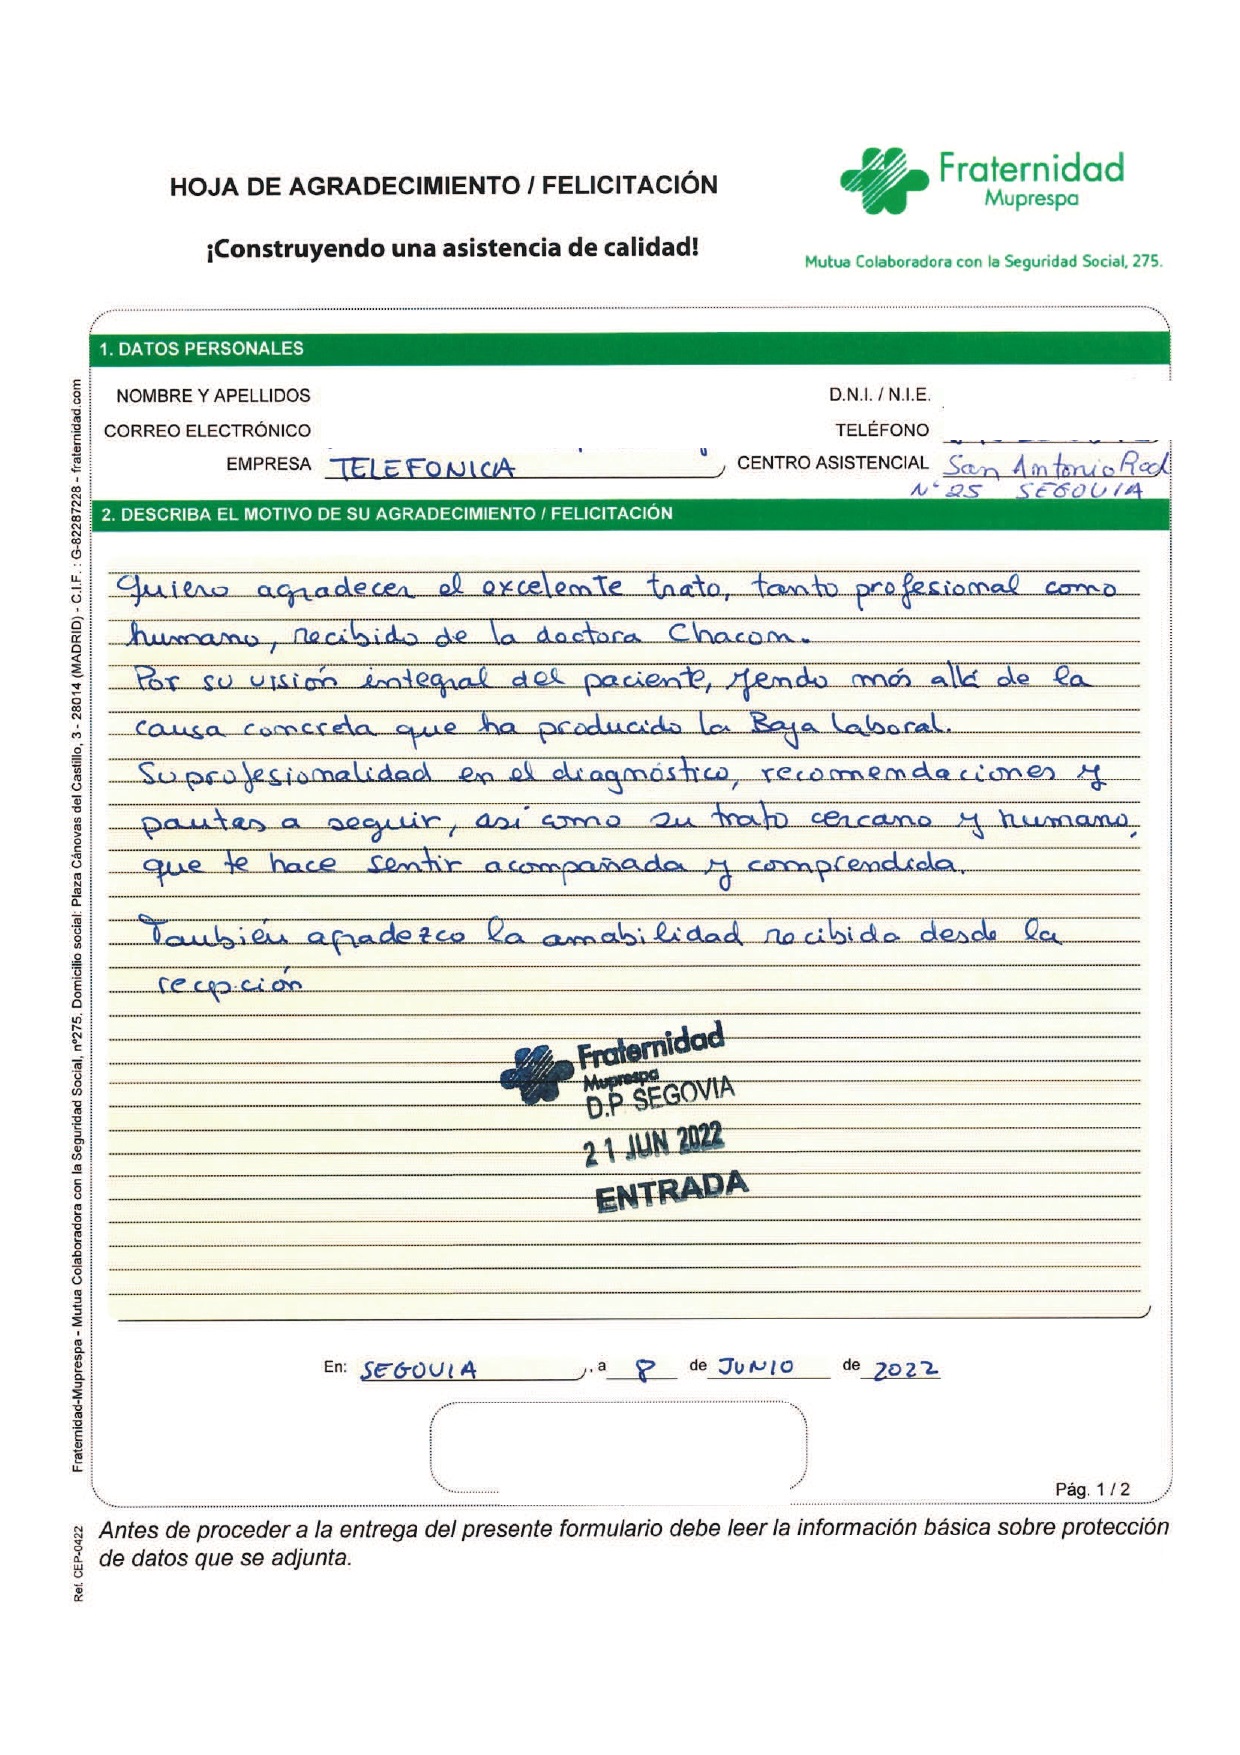 HOJA DE AGRADECIMIENTO / FELICITACIÓN
¡Construyendo una asistencia de calidad!
Fraternidad
Muprespa
Mutua Colaboradora con la Seguridad Social, 275.
1. DATOS PERSONALES
NOMBRE Y APELLIDOS
D.N.I. / N.I.E.
CORREO ELECTRÓNICO
TELÉFONO
EMPRESA TELEFONICA
CENTRO ASISTENCIAL San Antonio Rod
Nº 25 SEGOVIA
2. DESCRIBA EL MOTIVO DE SU AGRADECIMIENTO / FELICITACIÓN
Quiero agradecer el excelente trato, tanto profesional como
humano, recibido de la doctora Chacon.
Por su visión integral del paciente, yendo más allá de la
causa concreta que ha producido la Baja laboral.
Su profesionalidad en el diagnóstico, recomendaciones y
pautas a seguir, así como su trato cercano y humano,
que te hace sentir acompañada y comprendida.
También agradezco la amabilidad recibida desde la
recepción
Fraternidad
Muprespa
D.P. SEGOVIA
21 JUN 2022
ENTRADA
En: SEGOVIA, a 8 de JUNIO de 2022
Pág. 1 / 2
Antes de proceder a la entrega del presente formulario debe leer la información básica sobre protección
de datos que se adjunta.
Fraternidad-Muprespa - Mutua Colaboradora con la Seguridad Social, nº275. Domicilio social: Plaza Cánovas del Castillo, 3 - 28014 (MADRID) - C.I.F. : G-82287228 - fraternidad.com
Ref. CEP-0422